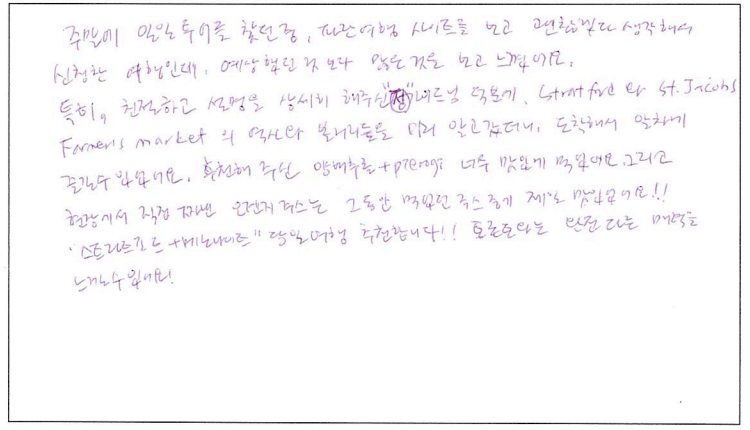 주말에 일일투어를 찾던 중, 파란여행 사이트를 보고 괜찮겠다 생각해서
신청한 여행인데, 예상했던 것 보다 많은 것을 보고 느꼈어요.
특히, 친절하고 설명을 상세히 해주신 가이드님 덕분에, Stratford 와 St. Jacobs
Farmers market 의 역사와 볼거리들을 미리 알고갔더니, 도착해서 알차게
즐길수 있었어요. 추천해 주신 양배추롤+pierogi 너무 맛있게 먹었어요. 그리고
현장에서 직접 짜낸 오렌지 쥬스는 그동안 먹었던 쥬스 중에 제일 맛있었어요!!
"스트라트포드+메노나이트" 당일여행 추천합니다!! 토론토와는 완전 다른 매력을
느낄수 있어요!